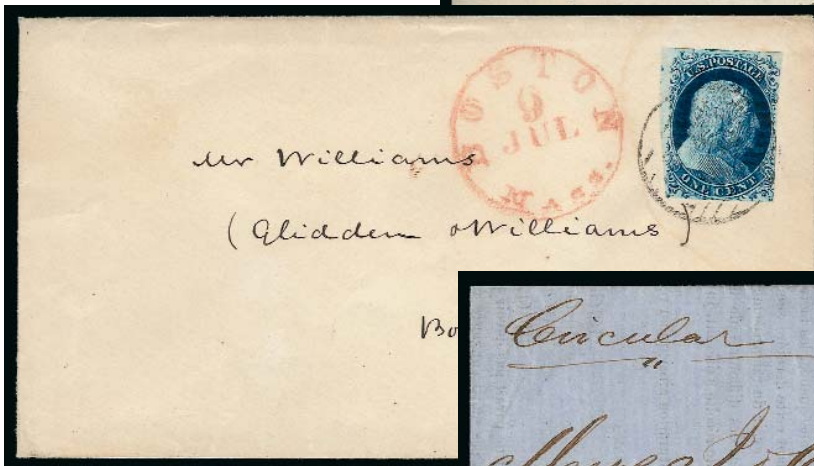 BOSTON
9
JUL
Mass.
U.S. POSTAGE
ONE CENT
Mr Williams
(Glidden & Williams)
Bo
Circular